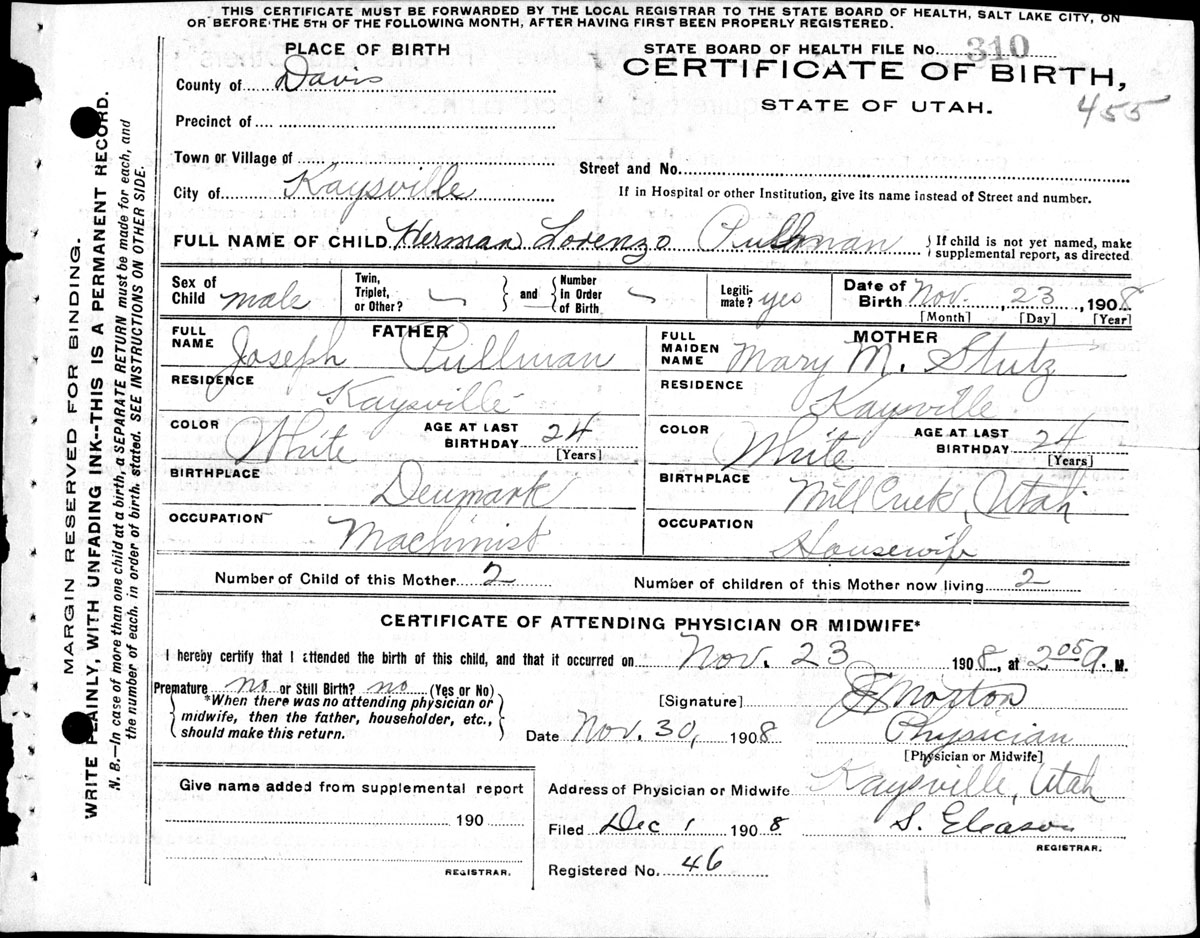 THIS CERTIFICATE MUST BE FORWARDED BY THE LOCAL REGISTRAR TO THE STATE BOARD OF HEALTH, SALT LAKE CITY, ON
OR BEFORE THE 5TH OF THE FOLLOWING MONTH, AFTER HAVING FIRST BEEN PROPERLY REGISTERED.
PLACE OF BIRTH
County of Davis
Precinct of
Town or Village of
City of Kaysville
STATE BOARD OF HEALTH FILE NO. 310
CERTIFICATE OF BIRTH,
STATE OF UTAH.
455
Street and No.
If in Hospital or other Institution, give its name instead of Street and number.
FULL NAME OF CHILD Herman Lorenzo Pullman
If child is not yet named, make
supplemental report, as directed
Sex of
Child male
Twin,
Triplet,
or Other?
and
Number
in Order
of Birth
Legiti-
mate? yes
Date of
Birth Nov. 23, 1908
[Month] [Day] [Year]
FATHER
FULL
NAME Joseph Pullman
RESIDENCE
Kaysville
COLOR White
AGE AT LAST
BIRTHDAY 24
[Years]
BIRTHPLACE Denmark
OCCUPATION Machinist
MOTHER
FULL
MAIDEN
NAME Mary M. Stutz
RESIDENCE
Kaysville
COLOR White
AGE AT LAST
BIRTHDAY 24
[Years]
BIRTHPLACE Mill Creek, Utah
OCCUPATION Housewife
Number of Child of this Mother 2
Number of children of this Mother now living 2
CERTIFICATE OF ATTENDING PHYSICIAN OR MIDWIFE*
I hereby certify that I attended the birth of this child, and that it occurred on Nov. 23 1908, at 2 05 a. M.
Premature no or Still Birth? no (Yes or No)
*When there was no attending physician or
midwife, then the father, householder, etc.,
should make this return.
[Signature] Morton
Date Nov. 30, 1908
Physician
[Physician or Midwife]
Address of Physician or Midwife Kaysville, Utah
Filed Dec 1 1908
S. Gleason
REGISTRAR.
Registered No. 46
Give name added from supplemental report
190
REGISTRAR.
MARGIN RESERVED FOR BINDING.
WRITE PLAINLY, WITH UNFADING INK--THIS IS A PERMANENT RECORD.
N. B.—In case of more than one child at a birth, a SEPARATE RETURN must be made for each, and
the number of each, in order of birth, stated. SEE INSTRUCTIONS ON OTHER SIDE.